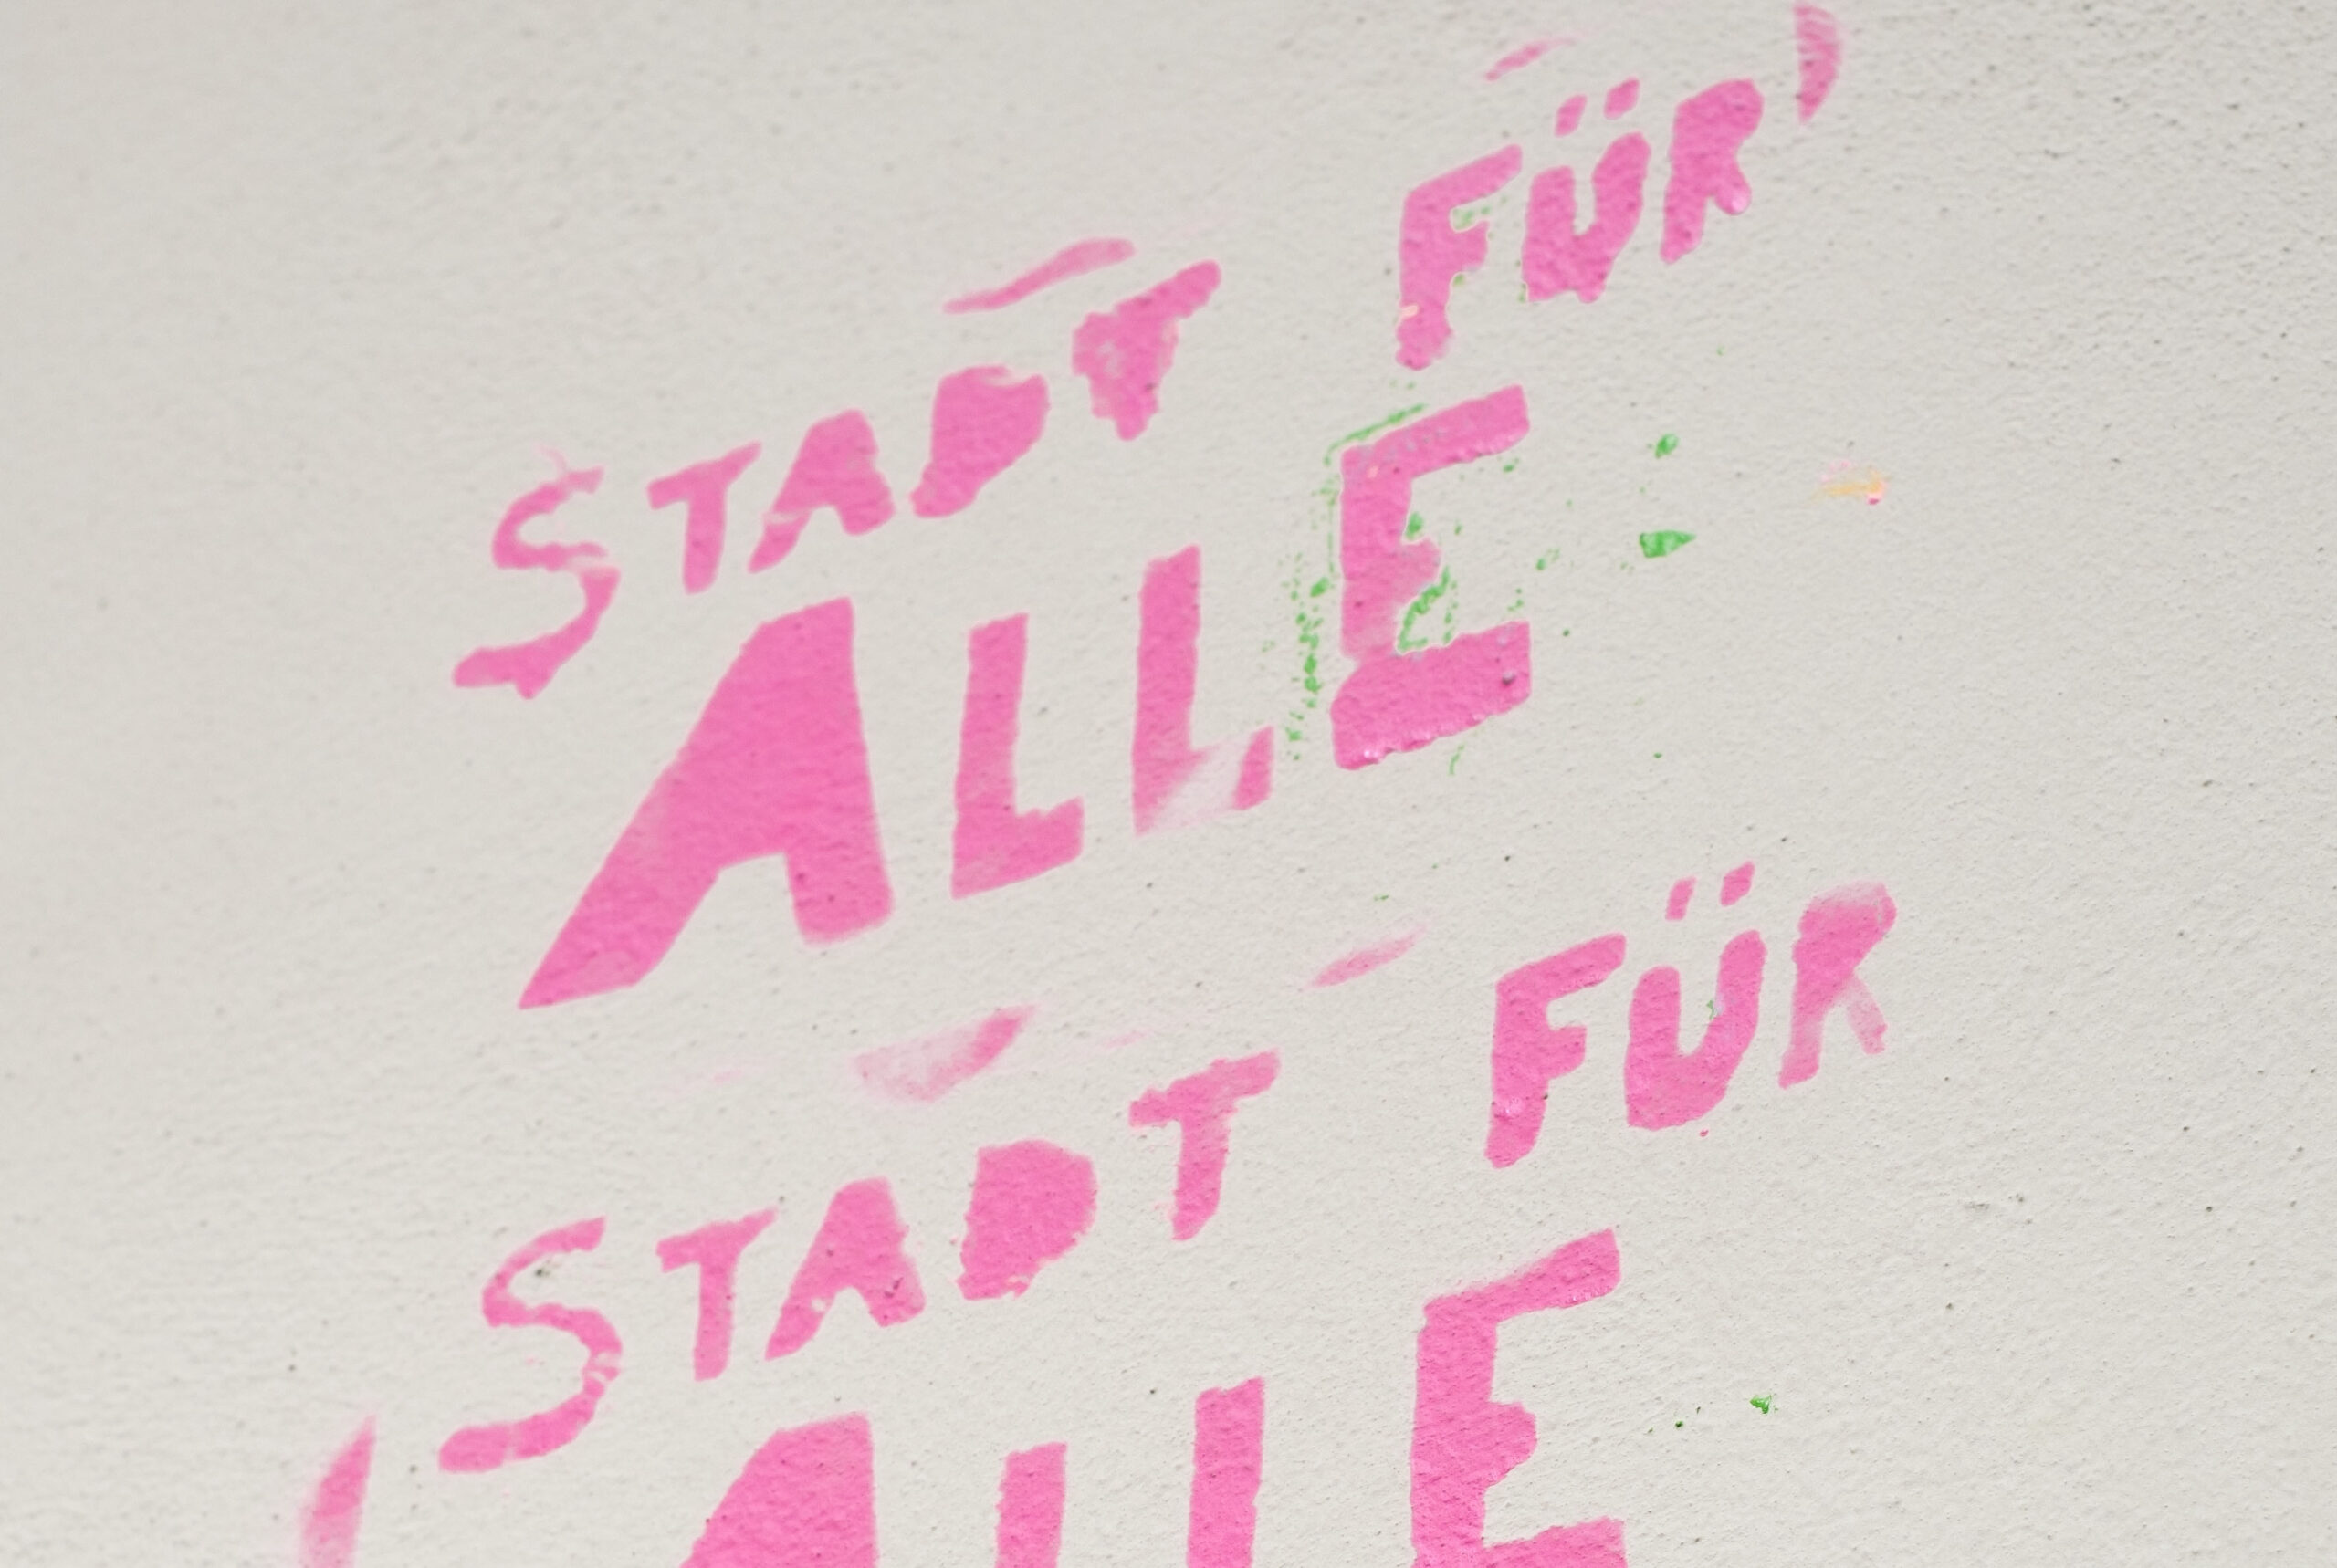 STADT FÜR
ALLE
STADT FÜR
ALLE